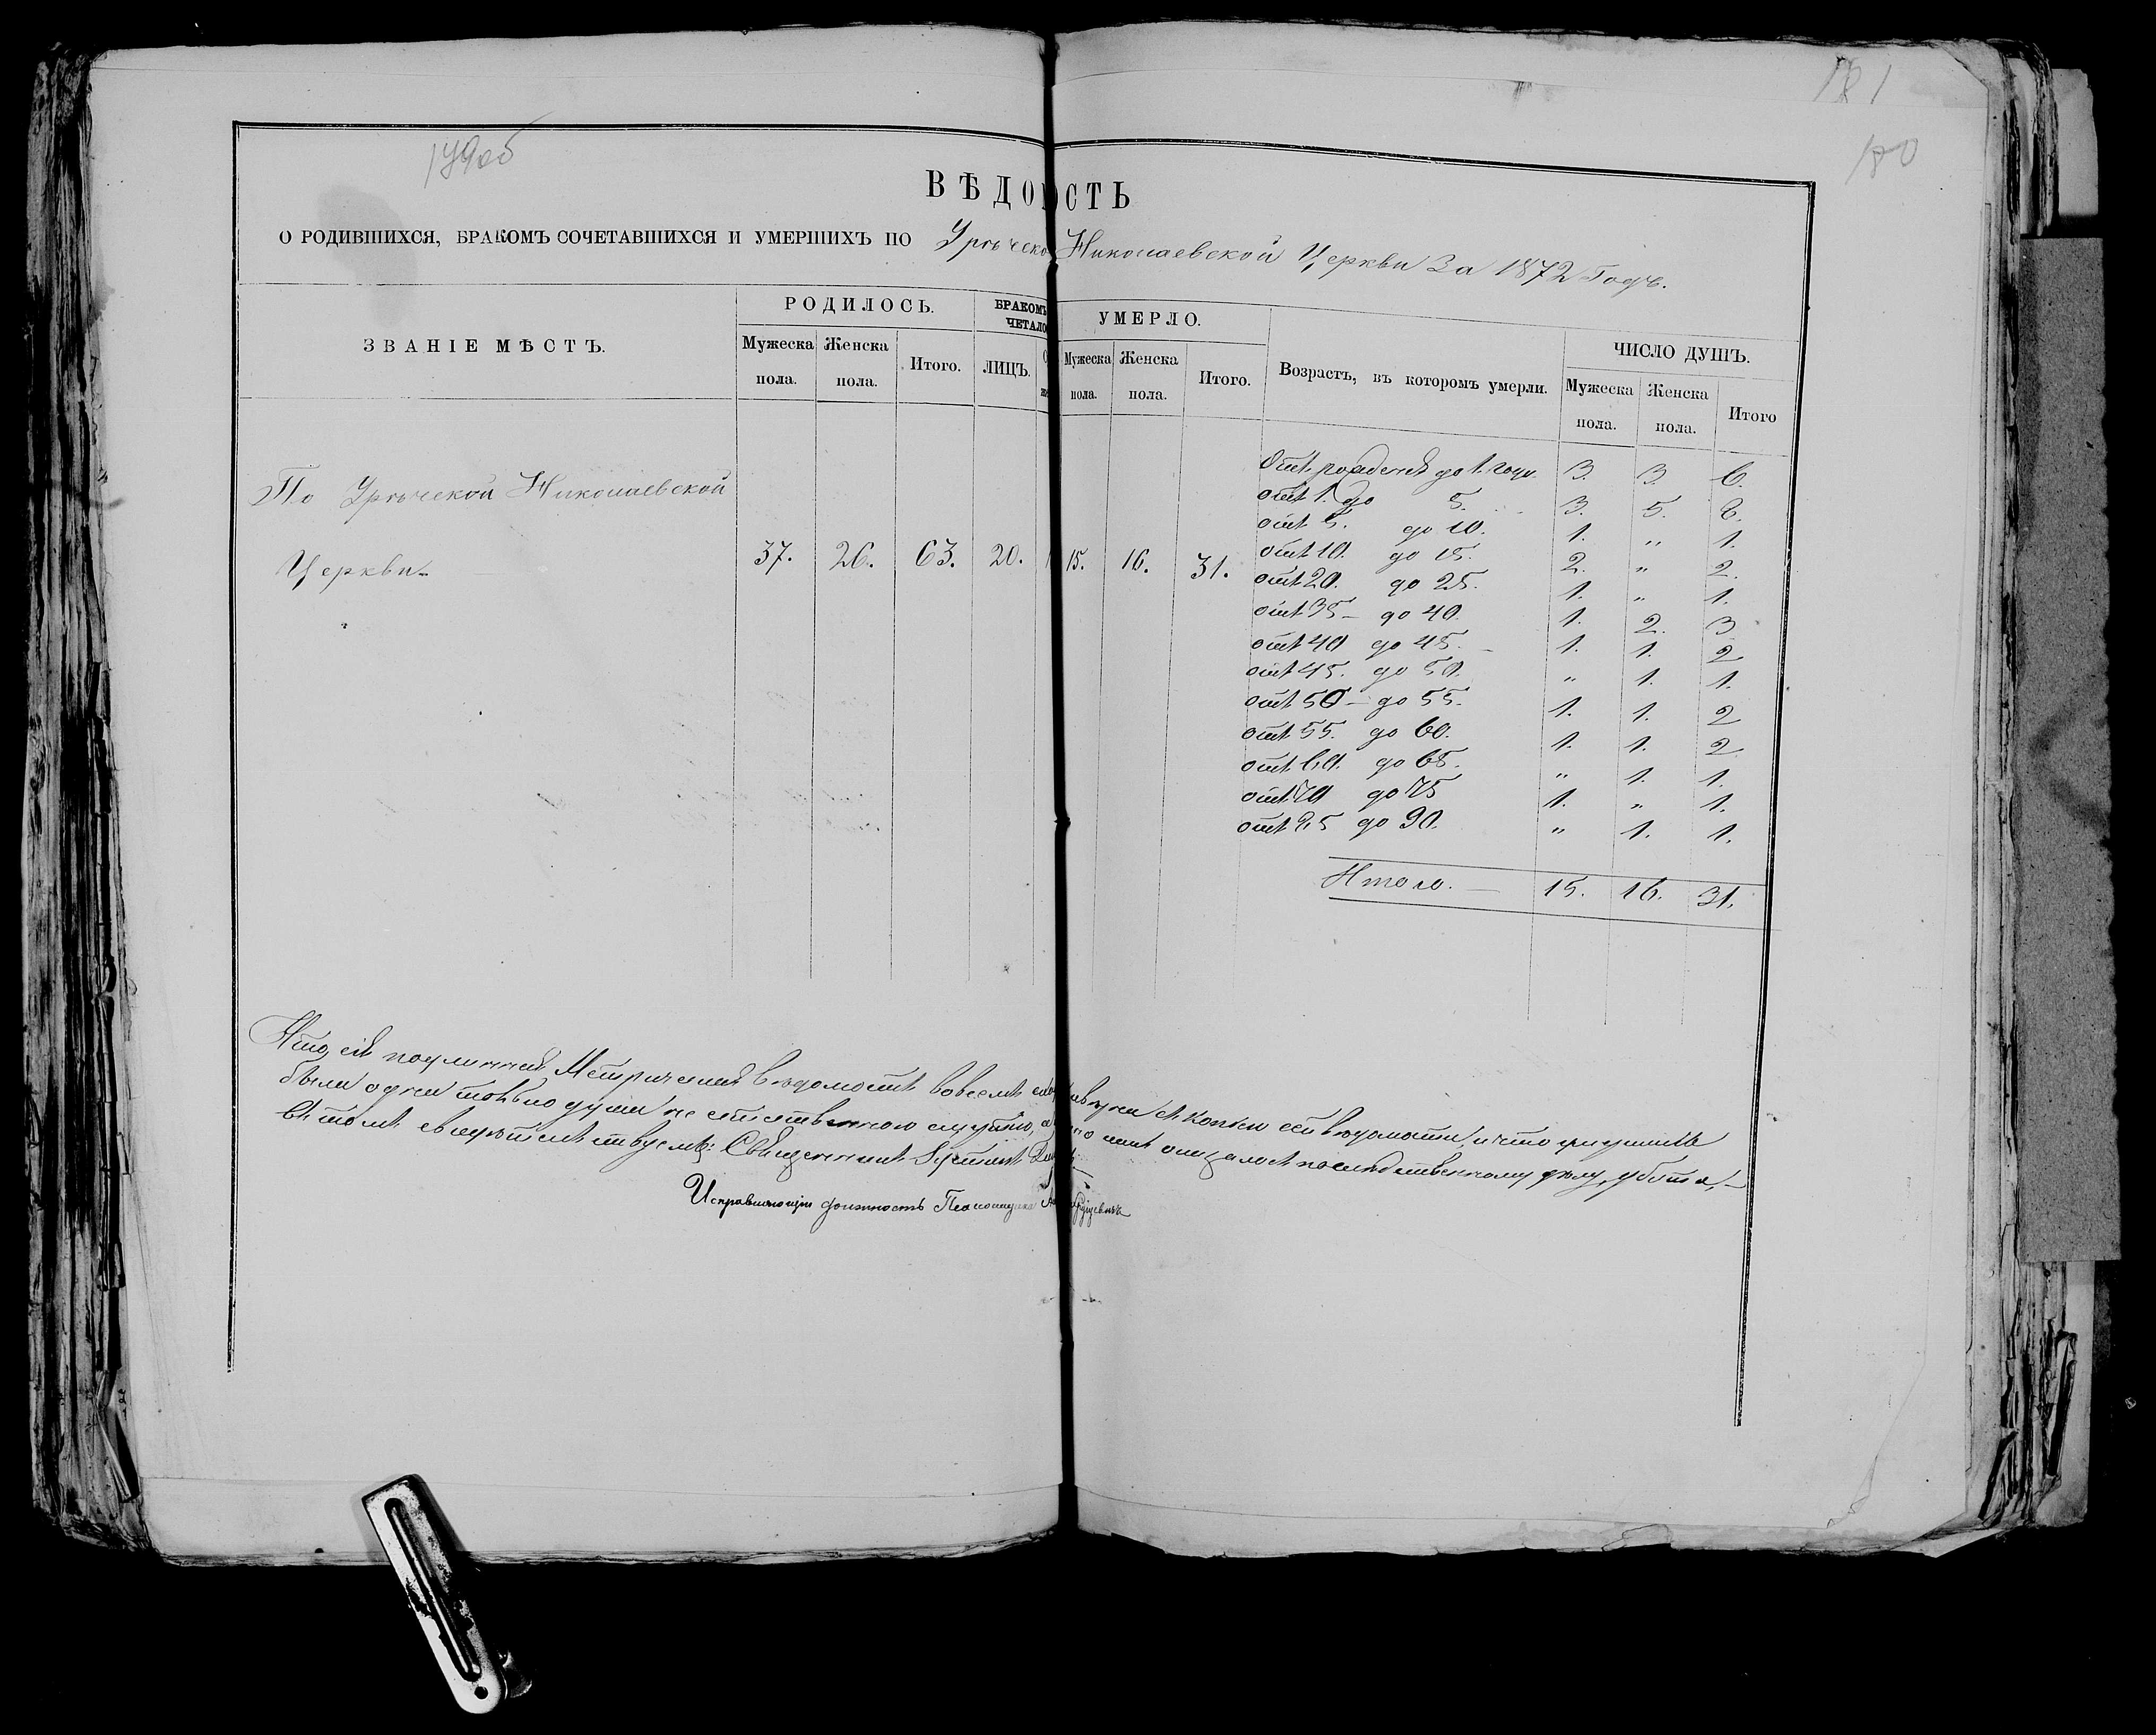 179об
181
180
ВѢДОМОСТЬ
О РОДИВШИХСЯ, БРАКОМЪ СОЧЕТАВШИХСЯ И УМЕРШИХЪ ПО Урѣческо Николаевской Церкви За 1872 Годъ.
ЗВАНІЕ МѢСТЪ. РОДИЛОСЬ. БРАКОМЪ ЧЕТАЛО УМЕРЛО. Возрастъ, въ которомъ умерли. ЧИСЛО ДУШЪ.
Мужеска пола. Женска пола. Итого. ЛИЦЪ. Мужеска пола. Женска пола. Итого. Мужеска пола. Женска пола. Итого
По Урѣческой Николаевской
Церкви 37. 26. 63. 20. 15. 16. 31.
Отъ рожденія до 1. года. 3. 3. 6.
отъ 1. до 5. 3. 5. 8.
отъ 5. до 10. 1. „ 1.
отъ 10. до 15. 2. „ 2.
отъ 20. до 25. 1. „ 1.
отъ 35 – до 40. 1. 2. 3
отъ 40 до 45. – 1. 1. 2
отъ 45. до 50. „ 1. 1.
отъ 50 – до 55. 1. 1. 2
отъ 55. до 60. 1. 1. 2
отъ 60. до 65. „ 1. 1.
отъ 70 до 75 1. „ 1.
отъ 85 до 90. „ 1. 1.
Итого. — 15. 16. 31.
Что, сія подлинная Метрическая вѣдомость вовсемъ съ копіею сей вѣдомости, и что
были одни только души не отъ
въ томъ свидѣтельствуемъ: Священникъ
Исправляющій должность Псаломщика